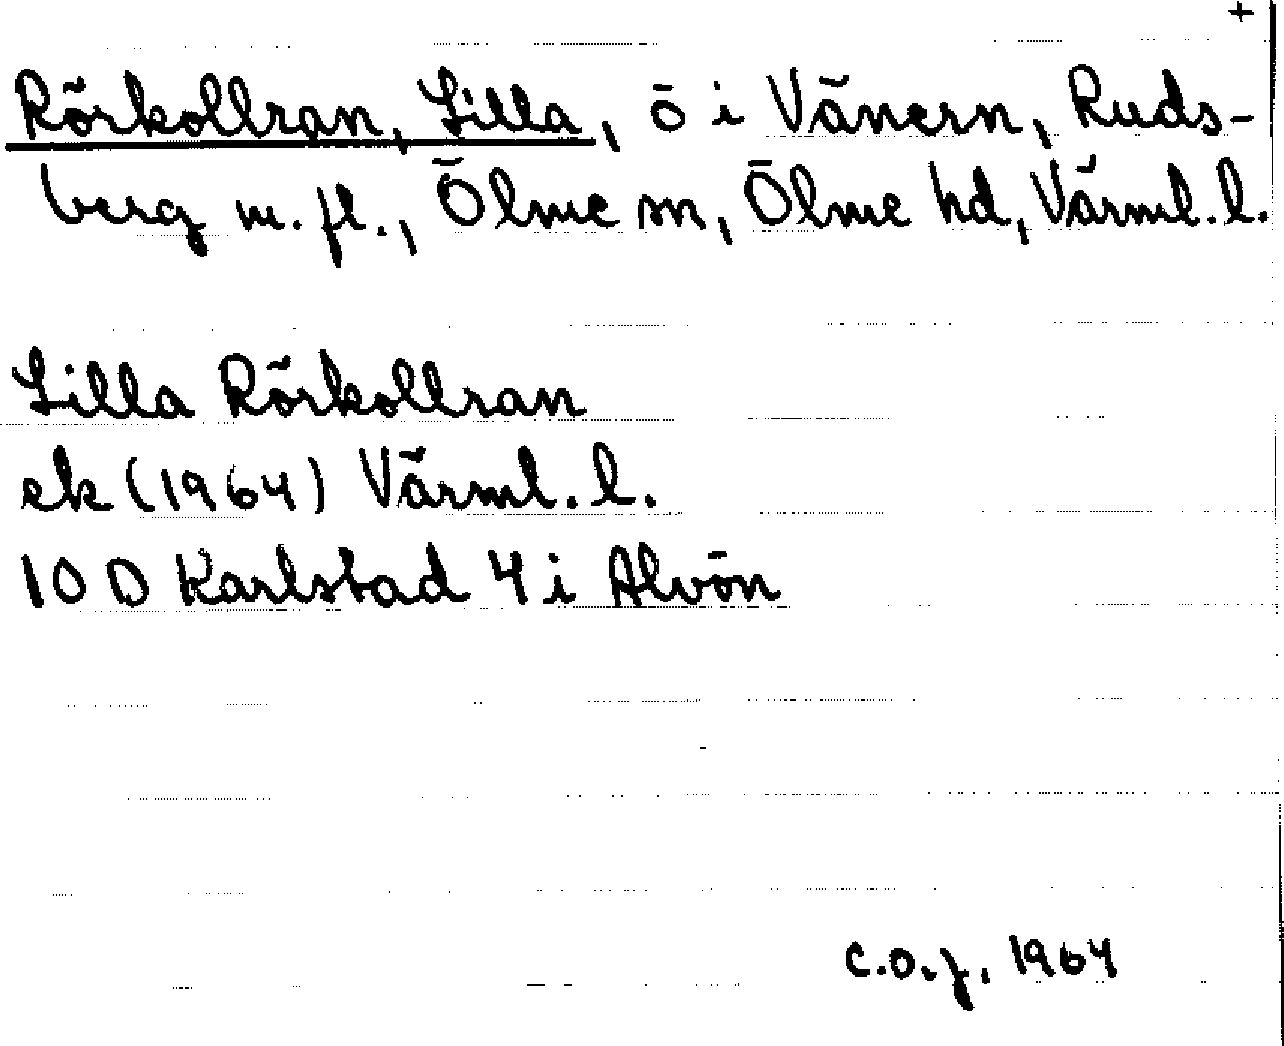 +
Rörkollran, Lilla, ö i Vänern, Ruds-
berg m. fl., Ölme sn, Ölme hd, Värml. l.
Lilla Rörkollran
ek (1964) Värml. l.
10 D Karlstad 4 i Alvön
C.O.J. 1964